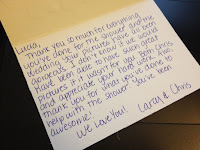 Lucia,
Thank you so much for everything
you've done for me shower and the
wedding. Your pictures have all been
gorgeous. I don't know if we would
have been able to have such great
pictures if it wasn't for you. Both Chris
and I appreciate your hard work. Also,
thank you for what you've done to
help with the shower. You've been
awesome!
We Love You!
& Chris